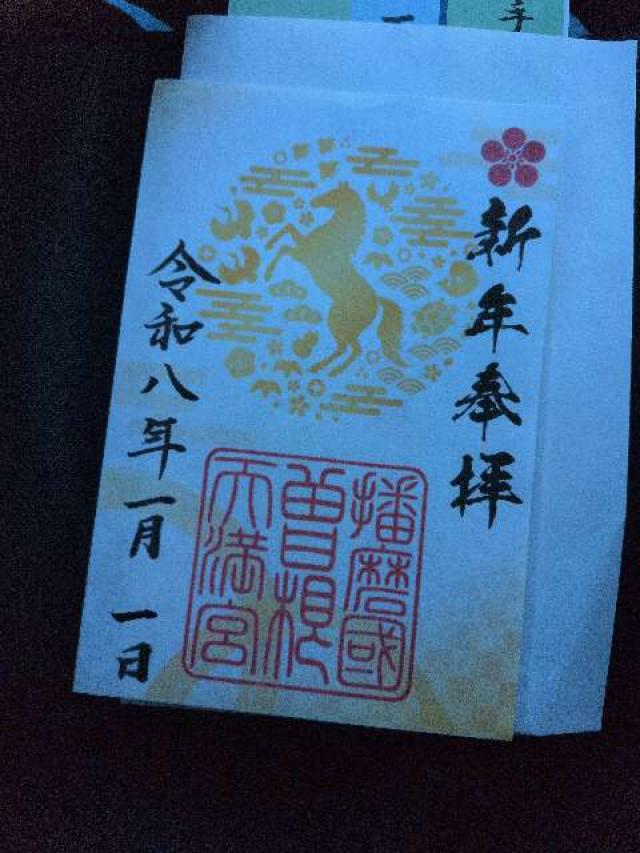 新年奉拝
播磨國
曽根
天満宮
令和八年一月一日